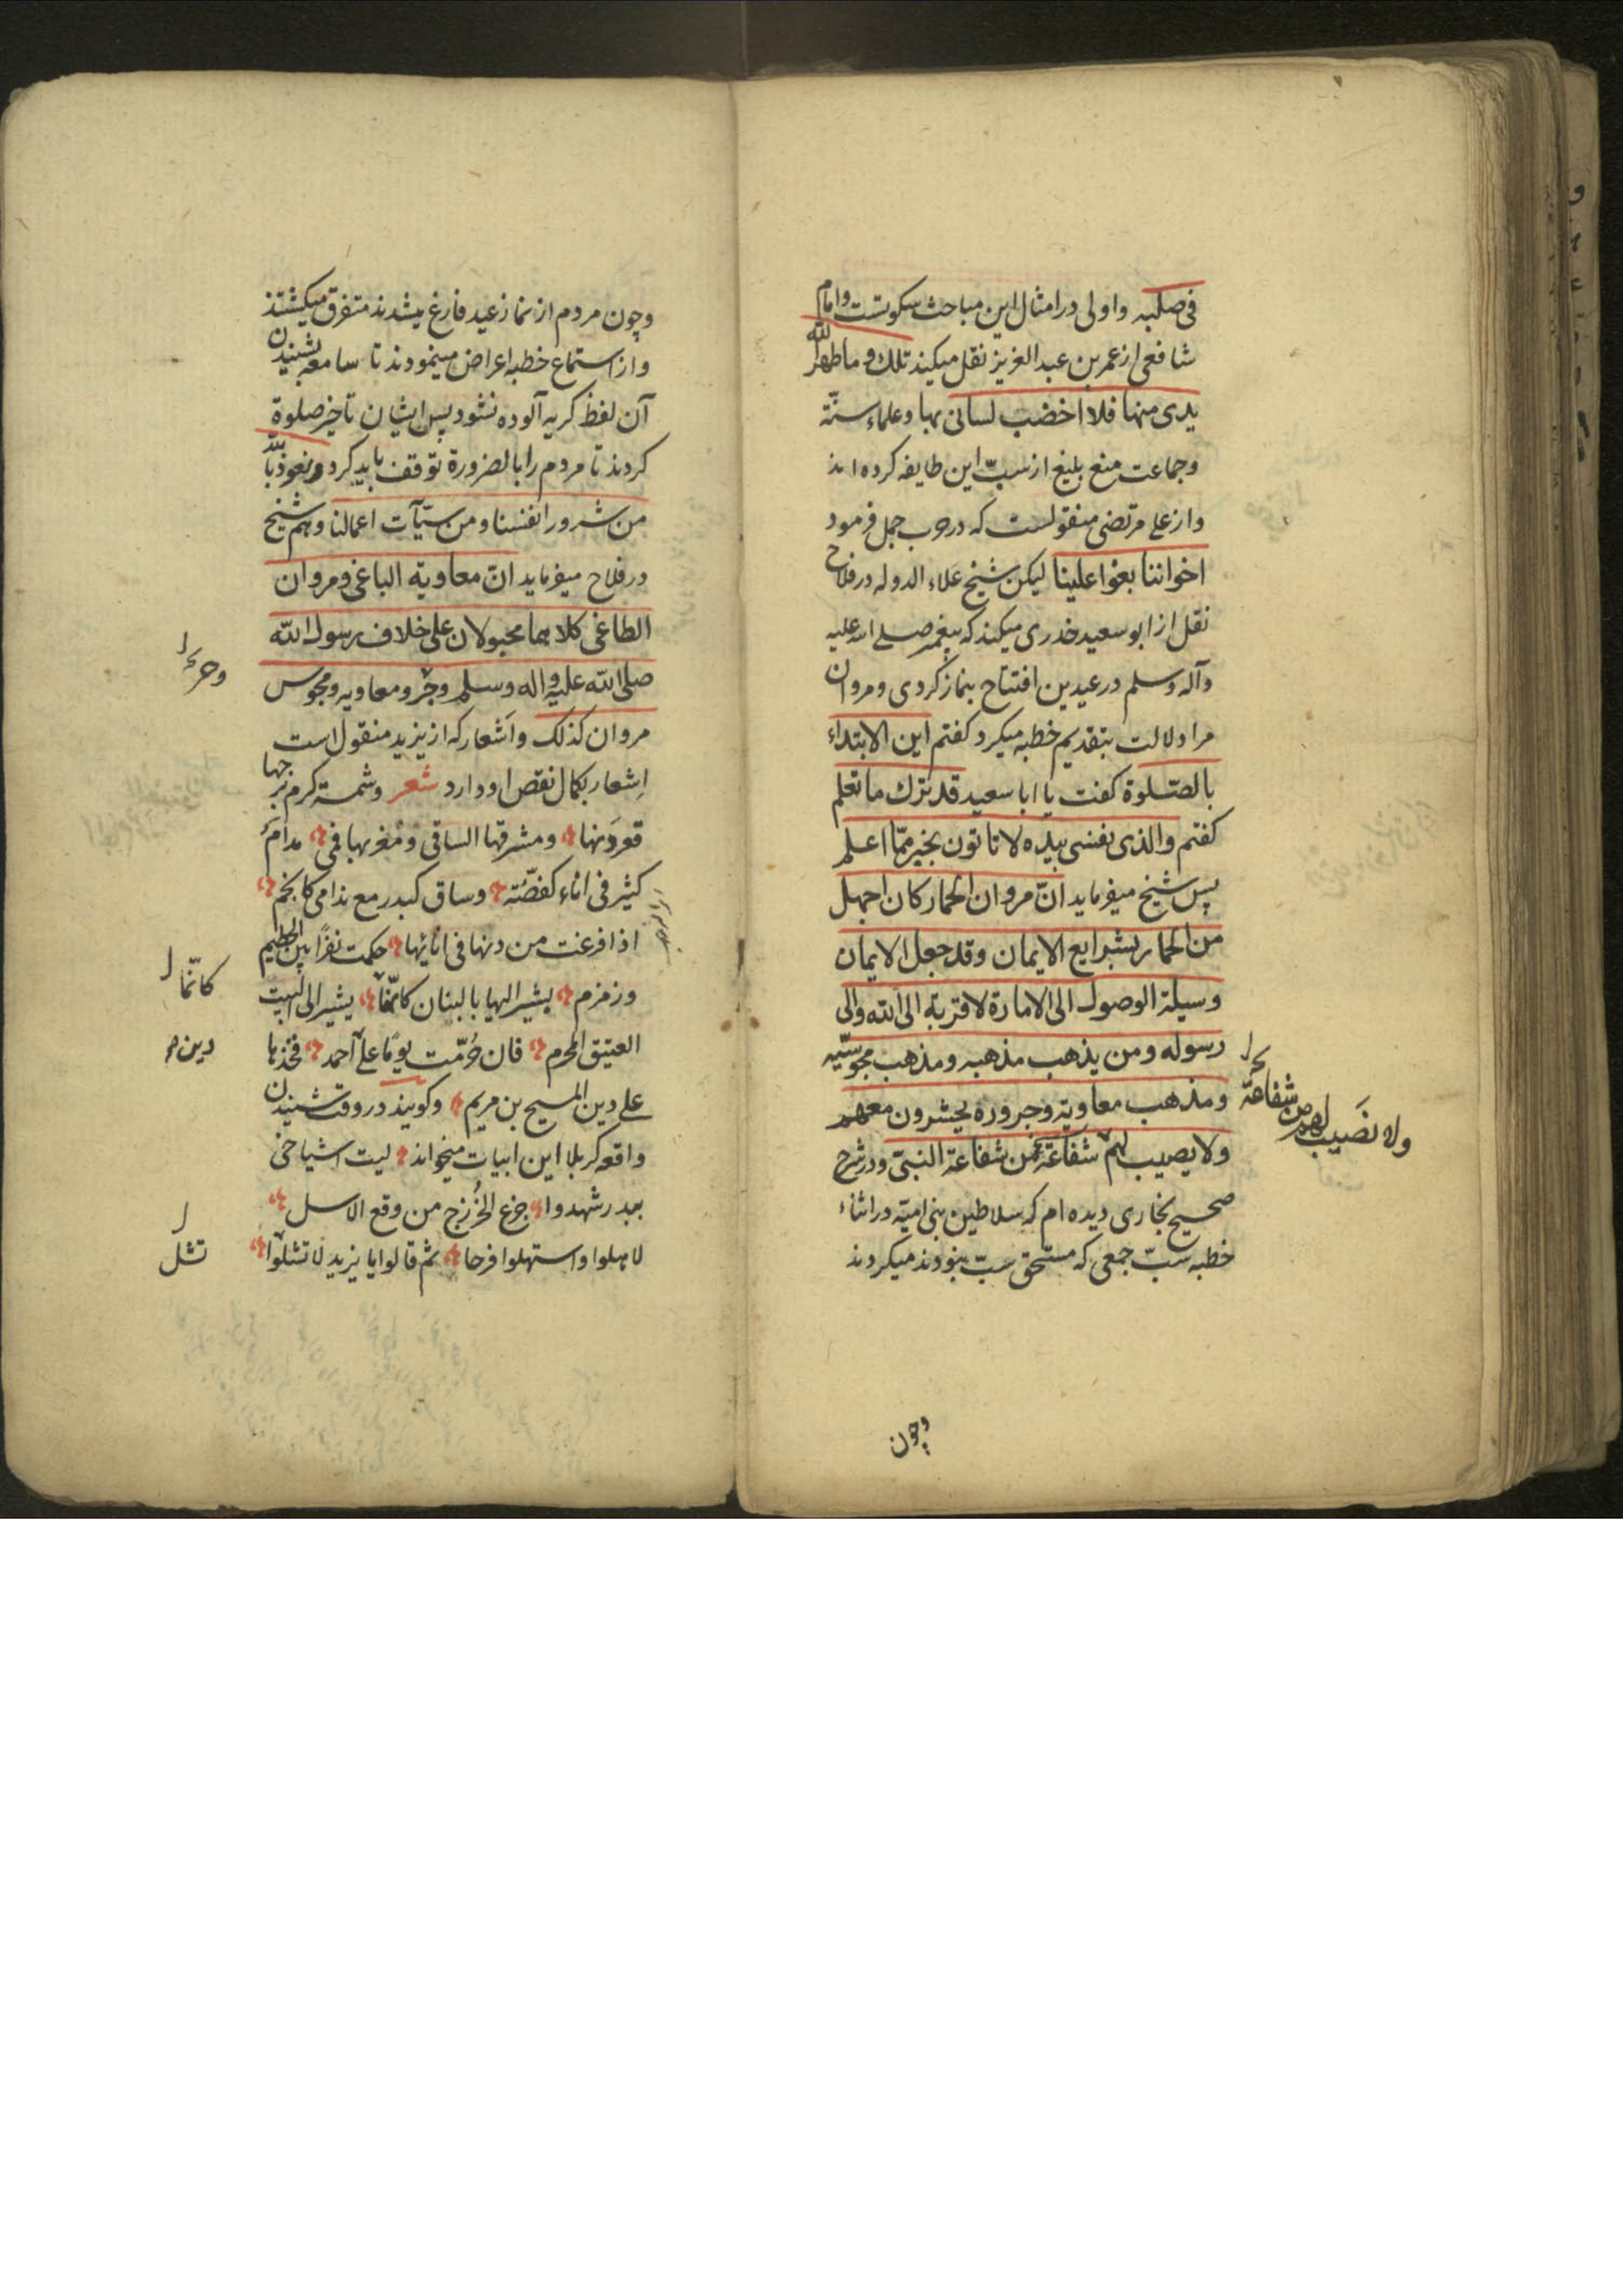 فی صلبه واولی در امثال این مباحث سکوتست وامام
شافعی از عمر بن عبد العزیز نقل میکند تلک دما طهر الله
یدی منها فلا اخضب لسانی بها وعلماء سنّة
وجماعت منع بلیغ از سبّ این طایفه کرده اند
واز علی مرتضی منقولست که در حرب جمل فرمود
اخواننا بغوا علینا لیکن شیخ علاء الدوله در فلاح
نقل از ابو سعید خدری میکند که پیغمبر صلی الله علیه
وآله وسلم در عیدین افتتاح بنماز کردی ومروان
مرا دلالت بتقدیم خطبه میکرد کفتم این الابتداء
بالصّلوة کفت یا ابا سعید قد ترک ما تعلم
کفتم والذی نفسی بیده لا تاتون بخیر ممّا اعلم
پس شیخ میفرماید انّ مروان الحمار کان اجهل
من الحمار بشرایع الایمان وقد جعل الایمان
وسیلة الوصول الی الامارة لا قربة الی الله والی
رسوله ومن یذهب مذهبه ومذهب مجوسیّه
ومذهب معاویة وجروره یحشرون معهم
ولا یصیب لهم شفاعة من شفاعة النبیّ ودر شرح
صحیح بخاری دیده ام که سلاطین بنی امیّه در اثناء
خطبه سبّ جمعی که مستحق سبّ نبودند میکردند
ولا نصَیب لهم من شفاعة
وچون
وچون مردم از نماز عید فارغ میشدند متفرق میکشتند
واز استماع خطبه اعراض مینمودند تا سامعه بشنیدن
آن لفظ کریه آلوده نشود پس ایشان تاخیر صلوة
کردند تا مردم را بالضرورة توقف باید کرد ونعوذ بالله
من شرور انفسنا ومن سیّآت اعمالنا وهم شیخ
در فلاح میفرماید انّ معاویة الباغی ومروان
الطاغی کلاهما مجبولان علی خلاف رسول الله
صلی الله علیه واله وسلم وجرو معاویه ومجوس
مروان کذلک واَشعار که از یزید منقول است
اِشعار بکمال نقص او دارد شعر وشمسة کرم برجها
قعر دَنها ومشرقها الساقی ومغربها فمی مدام
کثیر فی اناء کفضّة وساق کبدر مع ندامی کانجم
اذا فرغت من دنها فی انائها حکمت نفرًا بین الحطیم
وزمزم یشیر الیها بالبنان کانّما یشیر الی البیت
العتیق المحرم فان حُرّمت یومًا علی احمد فخذها
علی دین المسیح بن مریم وکویند در وقت شنیدن
واقعه کربلا این ابیات میخواند لیت اشیاخی
ببدر شهدوا جزع الخزرج من وقع الاسل
لاهلوا واستهلوا فرحا ثم قالوا یا یزید لا تشلوا
کانّما
دین
تشل